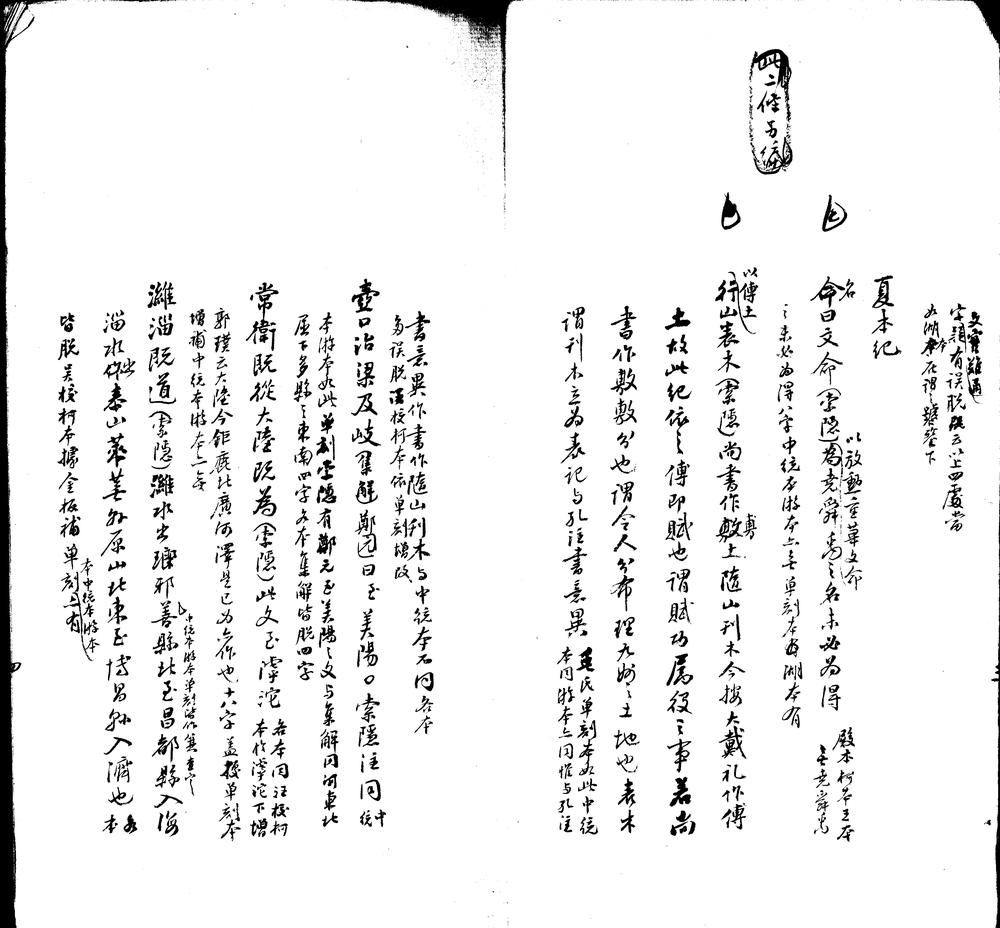 文實難通
字類有誤脱以上四處當
如湖本在謂之上
夏本紀
名曰文命(索隱)以放勳重華文命為堯舜禹之名未必為得
殿本柯本王本無堯舜禹
之未必為得八字中統本游本亦無單刻本湖本有
以傅土
行山表木(索隱)尚書作敷土隨山刊木今按大戴礼作傅
土故此紀依之傅即賦也謂賦功屬役之事若尚
書作敷敷分也謂令人分布理九州之土地也表木
謂刊木立為表記与孔注書意異
毛氏單刻本如此中統
本同游本亦同惟与孔注
書意異作書作隨山刊木与中統本不同各本
多誤脱汪校柯本依單刻增改
壺口治梁及岐(集解)鄭玄曰至美陽○索隱注同中統
本游本如此單刻索隱有鄭元至美陽之文与集解同河東北
屈下多縣之東南四字各本集解皆脱四字
常衛既從大陸既為(索隱)此文至滹沱
各本同汪校柯
本作滹沱下增
郭璞云大陸今鉅鹿北廣河澤是已為亦作也十八字蓋據單刻本
增補中統本游本亦無
濰淄既道(索隱)濰水出瑯邪箕縣北至昌都縣入海
中統本游本單刻皆作箕
淄水出泰山萊蕪縣原山北東至博昌縣入濟也各本
皆脱吴校柯本據金板補單刻亦有
本中統本游本